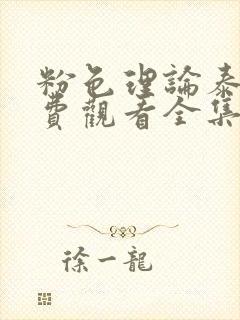 粉色理論泰
費觀看全集
徐一龍